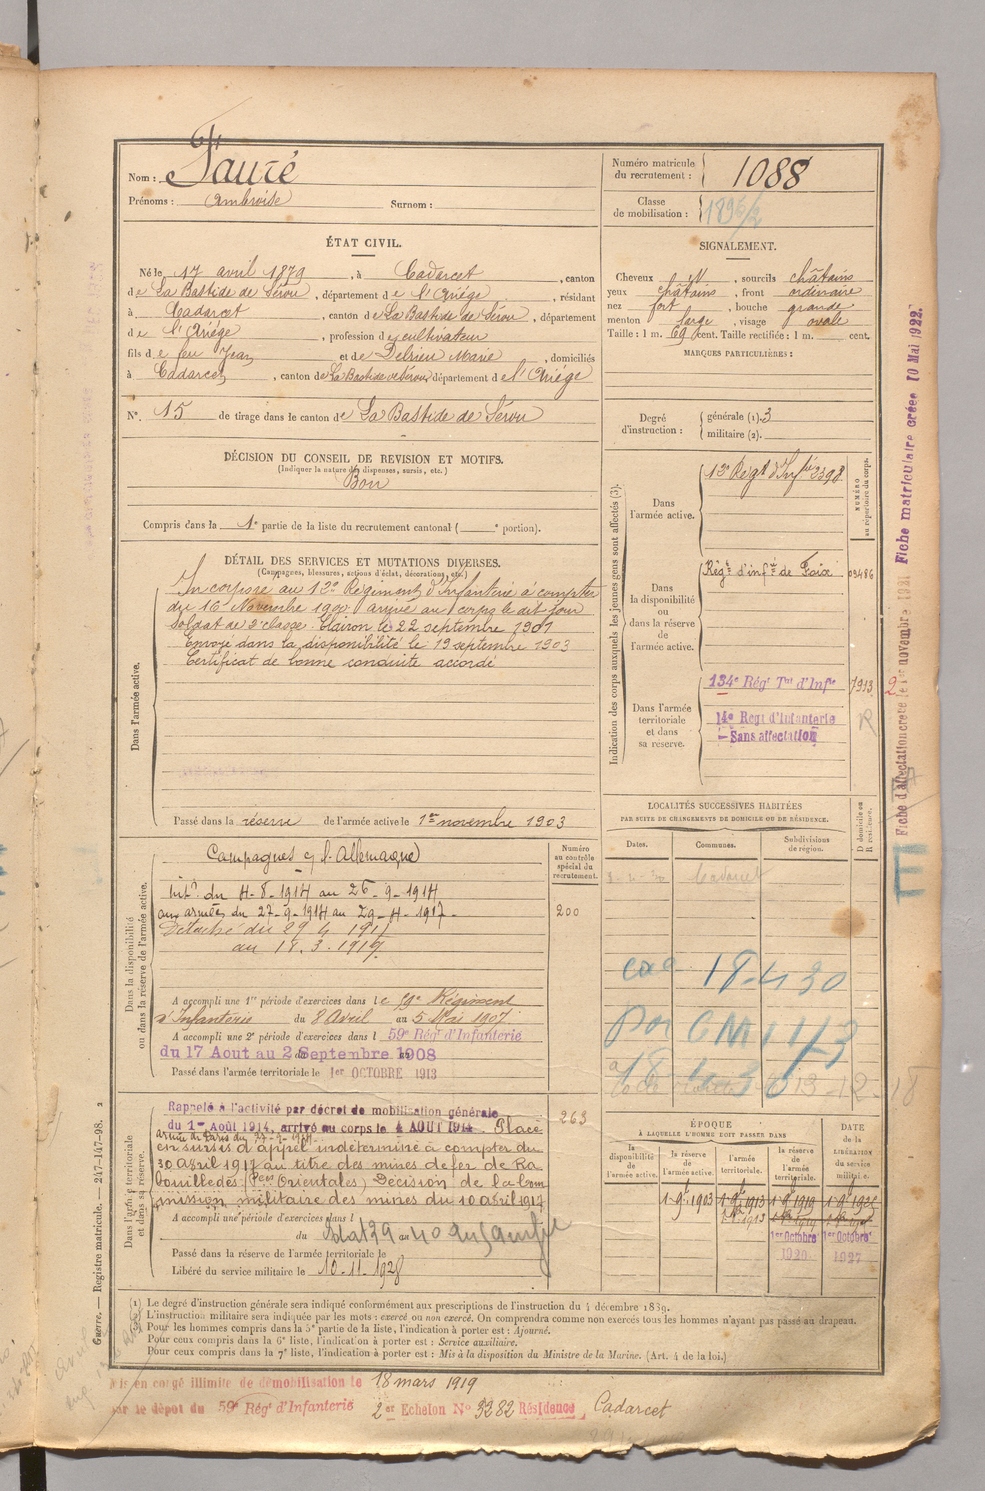 Nom : Fauré
Prénoms : Ambroise Surnom :
Numéro matricule du recrutement : 1088
Classe de mobilisation : 1896/2
ÉTAT CIVIL.
Né le 17 avril 1879, à Cadarcet, canton
de La Bastide de Sérou, département de l'Ariége, résidant
à Cadarcet, canton de La Bastide de Sérou, département
de l'Ariége, profession de cultivateur
fils de feu Jean et de Delrieu Marie, domiciliés
à Cadarcet, canton de La Bastide de Sérou, département de l'Ariége
N°. 15 de tirage dans le canton de La Bastide de Sérou
SIGNALEMENT.
Cheveux id, sourcils châtains
yeux châtains, front ordinaire
nez fort, bouche grande
menton large, visage ovale
Taille : 1 m. 69 cent. Taille rectifiée : 1 m. cent.
MARQUES PARTICULIÈRES :
Degré d'instruction : générale (1). 3
militaire (2).
DÉCISION DU CONSEIL DE REVISION ET MOTIFS.
(Indiquer la nature des dispenses, sursis, etc.)
Bon
Compris dans la 1e partie de la liste du recrutement cantonal ( e portion).
DÉTAIL DES SERVICES ET MUTATIONS DIVERSES.
(Campagnes, blessures, actions d'éclat, décorations, etc.)
Dans l'armée active.
Incorporé au 12e Régiment d'Infanterie à compter
du 16 Novembre 1900 arrivé au corps le dit jour
Soldat de 2e classe. Clairon le 22 septembre 1901
Envoyé dans la disponibilité le 19 septembre 1903
Certificat de bonne conduite accordé
Passé dans la réserve de l'armée active le 1er novembre 1903
Indication des corps auxquels les jeunes gens sont affectés (3).
NUMÉRO au répertoire du corps.
Dans l'armée active.
12e Régt d'Infie 3398
Dans la disponibilité ou dans la réserve de l'armée active.
Régt d'infie de Foix 03486
Dans l'armée territoriale et dans sa réserve.
134e Régt Tal d'Infie 7913
14e Regt d'Infanterie
Sans affectation
R
LOCALITÉS SUCCESSIVES HABITÉES
PAR SUITE DE CHANGEMENTS DE DOMICILE OU DE RÉSIDENCE.
Dates. Communes. Subdivisions de région. D domicile ou R résidence.
Cadarcet
18-4-30
Dans la disponibilité ou dans la réserve de l'armée active.
Numéro au contrôle spécial du recrutement.
Campagnes c/ l'Allemagne
Intr du 4-8-1914 au 26-9-1914
aux armées du 27-9-1914 au 29-4-1917
200
Détaché du 29 4 1917
au 18.3.1919
A accompli une 1re période d'exercices dans le 59e Régiment
d'Infanterie du 8 Avril au 5 Mai 1907
A accompli une 2e période d'exercices dans l 59e Régt d'Infanterie
du 17 Aout au 2 Septembre 1908
Passé dans l'armée territoriale le 1er OCTOBRE 1913
Dans l'armée territoriale et dans sa réserve.
Rappelé à l'activité par décret de mobilisation générale
du 1er Août 1914, arrivé au corps le 4 AOUT 1914. Placé
263
en sursis d'appel indéterminé à compter du
30 avril 1917 au titre des mines de fer de Ra-
bouillèdes (Pées Orientales) Décision de la Com
mission militaire des mines du 10 avril 1917
A accompli une période d'exercices dans l
du au
Passé dans la réserve de l'armée territoriale le
Libéré du service militaire le 10.11.1928
ÉPOQUE
À LAQUELLE L'HOMME DOIT PASSER DANS
la disponibilité de l'armée active. la réserve de l'armée active. l'armée territoriale. la réserve de l'armée territoriale. DATE de la LIBÉRATION du service militaire.
1 9bre 1903 1 9bre 1913 1 9bre 1919 1 9bre 1925
1er Octobre 1er Octobre
1920 1927
(1) Le degré d'instruction générale sera indiqué conformément aux prescriptions de l'instruction du 4 décembre 1889.
L'instruction militaire sera indiquée par les mots : exercé ou non exercé. On comprendra comme non exercés tous les hommes n'ayant pas passé au drapeau.
Pour les hommes compris dans la 5e partie de la liste, l'indication à porter est : Ajourné.
Pour ceux compris dans la 6e liste, l'indication à porter est : Service auxiliaire.
Pour ceux compris dans la 7e liste, l'indication à porter est : Mis à la disposition du Ministre de la Marine. (Art. 4 de la loi.)
Mis en congé illimité de démobilisation le 18 mars 1919
par le dépôt du 59e Régt d'Infanterie 2er Echelon N° 3282 Résidence Cadarcet
Guerre. — Registre matricule. — 247-147-98. 2
Fiche matriculaire créée 10 Mai 1922.